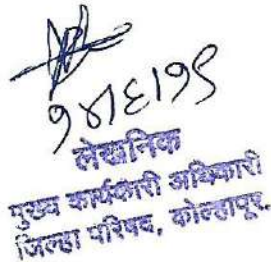 १४।६।१९
लेखनिक
मुख्य कार्यकारी अधिकारी
जिल्हा परिषद, कोल्हापूर.